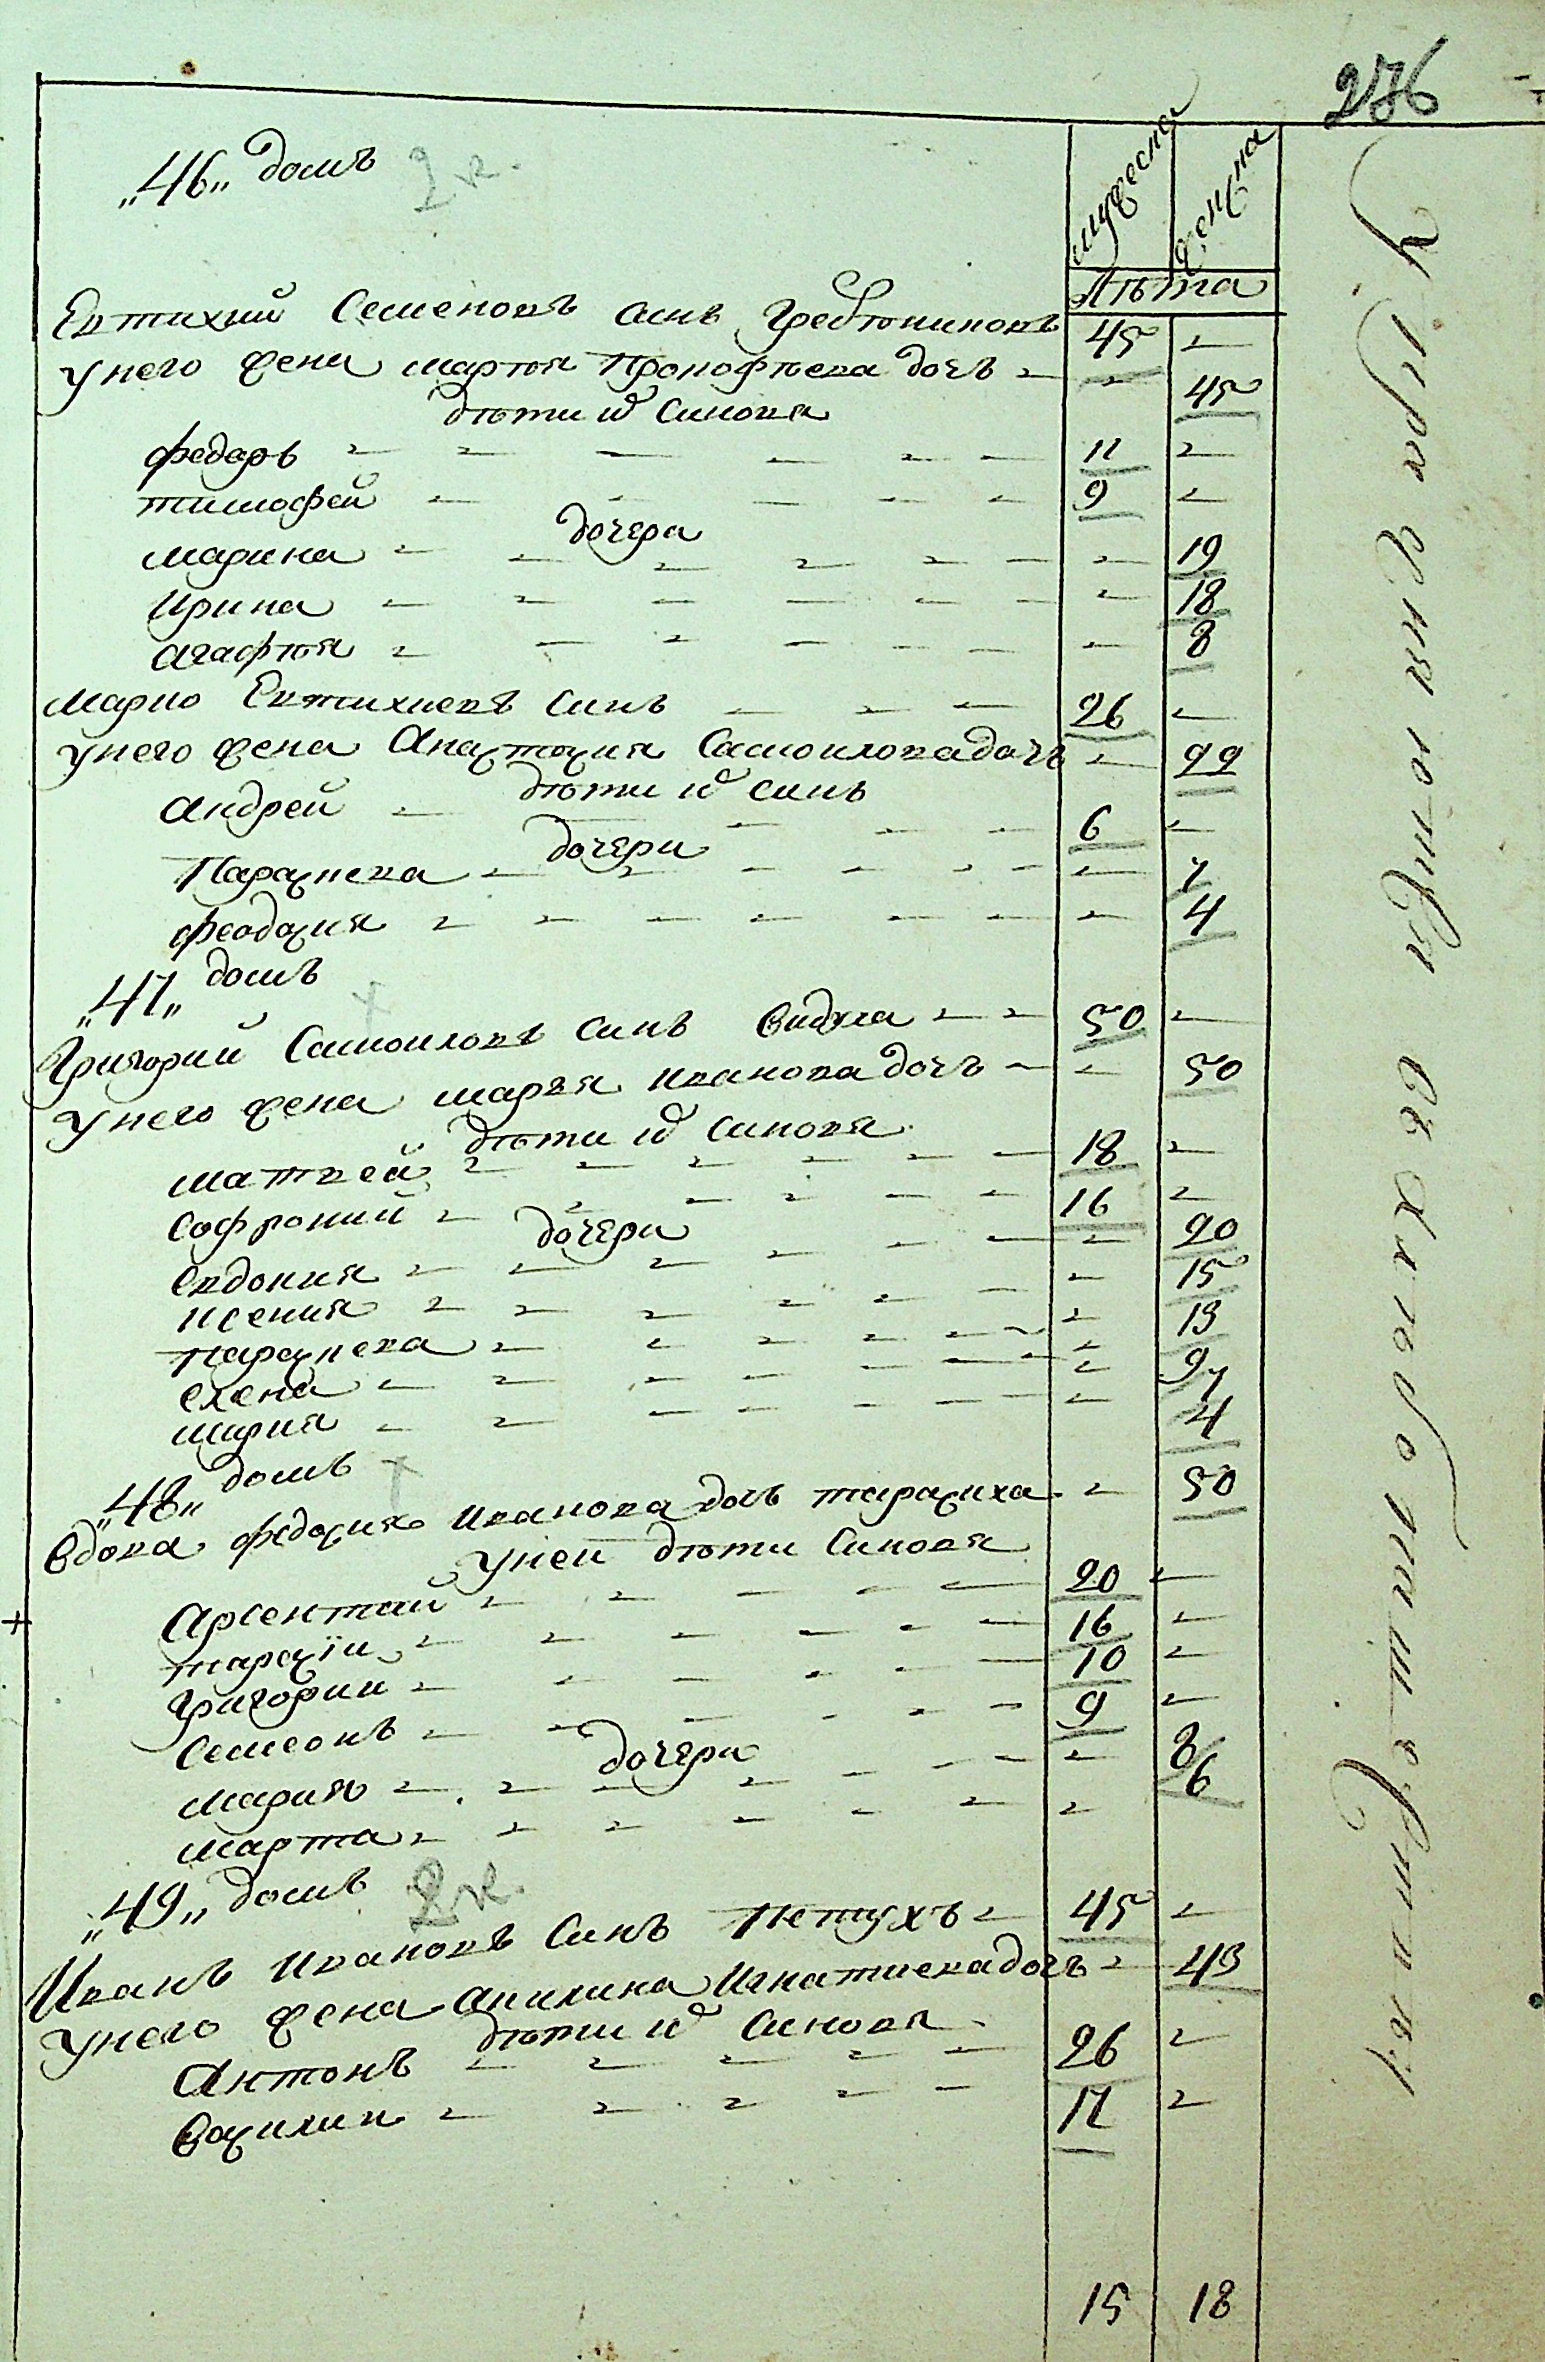 276
мужеска
женска
„46„ домъ 2 к.
Лѣта
Евтихий Семеновъ синъ Гребѣниковъ 45 –
у него жена марѣя Прокофѣева дочъ – – 45
дѣти их синовя
федаръ – – – – – – 11 –
тимофей – – – – – 9 –
дочера
марина – – – – – – – 19
Ирина – – – – – – – 18
агафѣя – – – – – – – 8
марко Евтихиевъ синъ – – – 26 –
у него жена Анаѕтаѕия Самоиловадочъ – 22
дѣти их синъ
андрей – – – – 6 –
дочери
Параѕкева – – – – – – – 7
феодоѕия – – – – – – – 4
„47„ домъ
Григорий Самоиловъ синъ – – 50 –
у него жена маръя иванова дочъ – – 50
дѣти их синовя
матвей – – – – – – 18 –
софроний – – – – – – 16 –
дочери
евдокия – – – – – – – 20
ксения – – – – – – – 15
параѕкева – – – – – – – 13
елена – – – – – – – 9
мария – – – – – – – 7
4
„48„ домъ
вдова федоѕия иванова дочъ тараѕиха – 50
у неи дѣти синовя
арсентий – – – – – 20 –
тараѕiи – – – – – – 16 –
григории – – – – – – 10 –
семеонъ – – – – – – 9 –
дочери
мария – – – – – – – – 8
марта – – – – – – – 6
„49„ домъ 2 к.
Иванъ ивановъ синъ Петухъ – 45 –
у него жена акилина Игнатиевадочъ – 43
дѣти их синовя
антонъ – – – – – 26 –
ваѕилии – – – – – 17 –
15 18